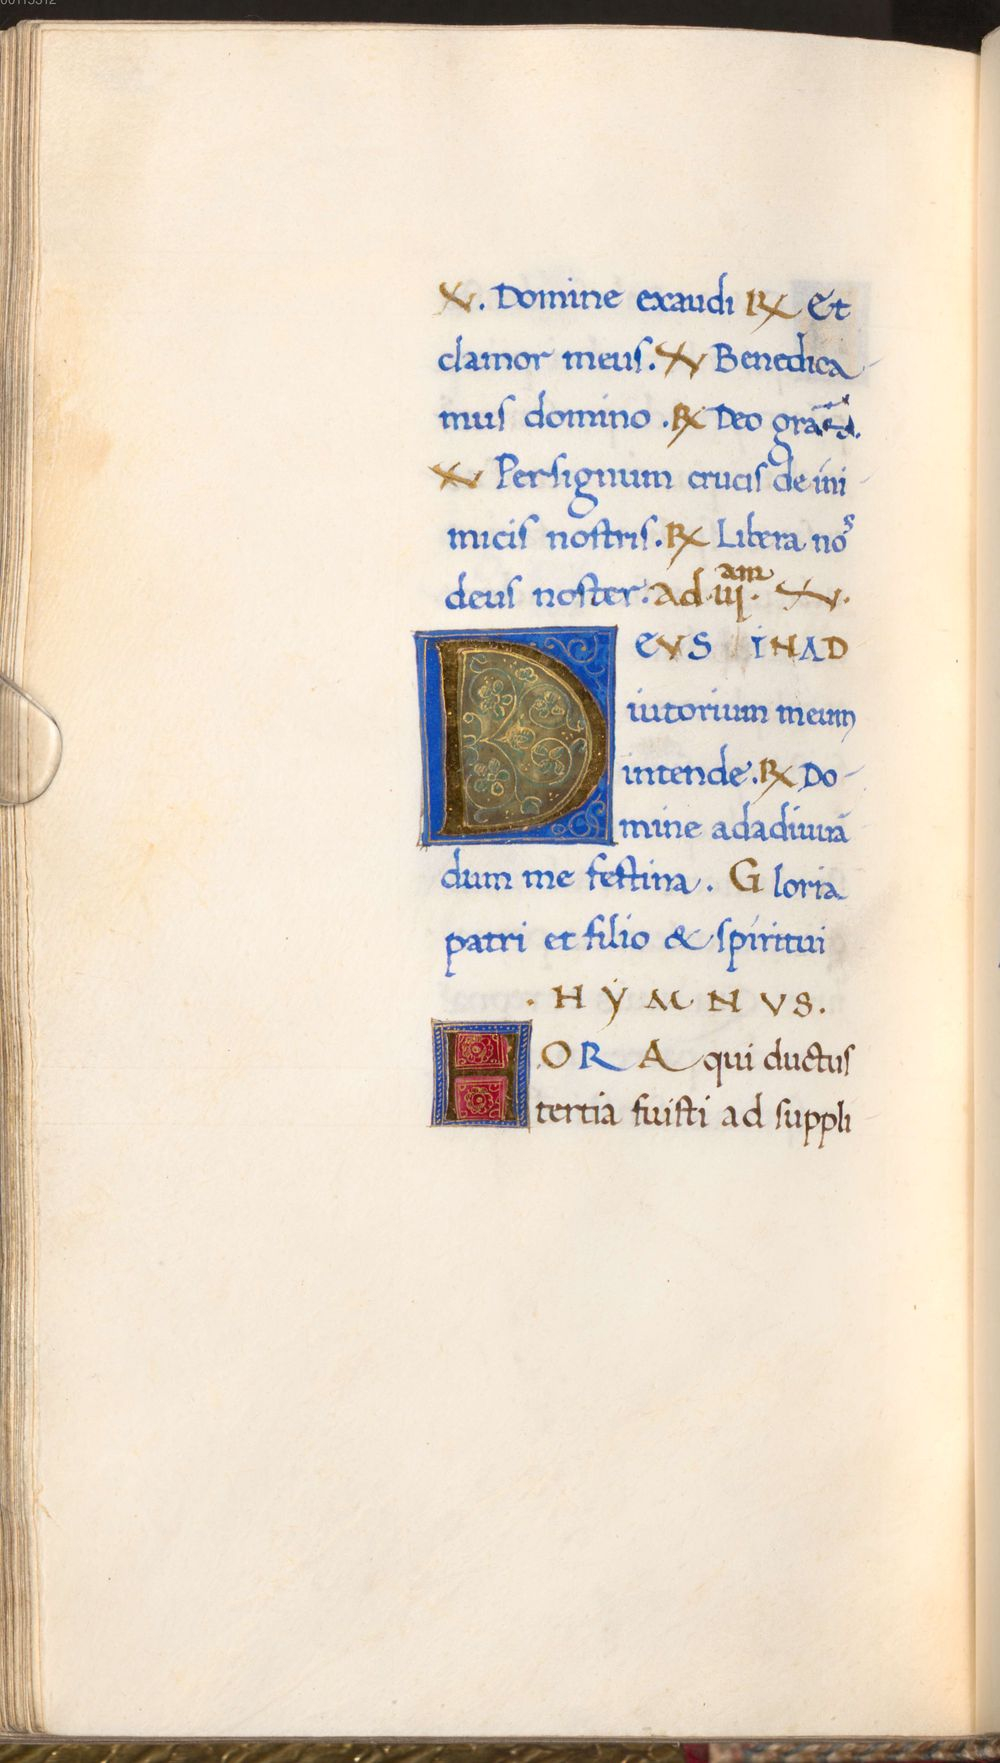 ℣. Domine exaudi ℞ Et
clamor meus. ℣ Benedica
mus domino . ℞ Deo gra͞s.
℣ Per signum crucis de ini
micis nostris. ℞ Libera nos
deus noster. ad .iijam. ℣.
DEVS IN AD
iutorium meum
intende. ℞ Do-
mine ad adiuuā
dum me festina. Gloria
patri et filio & spiritui
. HẎMNVS.
HORA qui ductus
tertia fuisti ad suppli